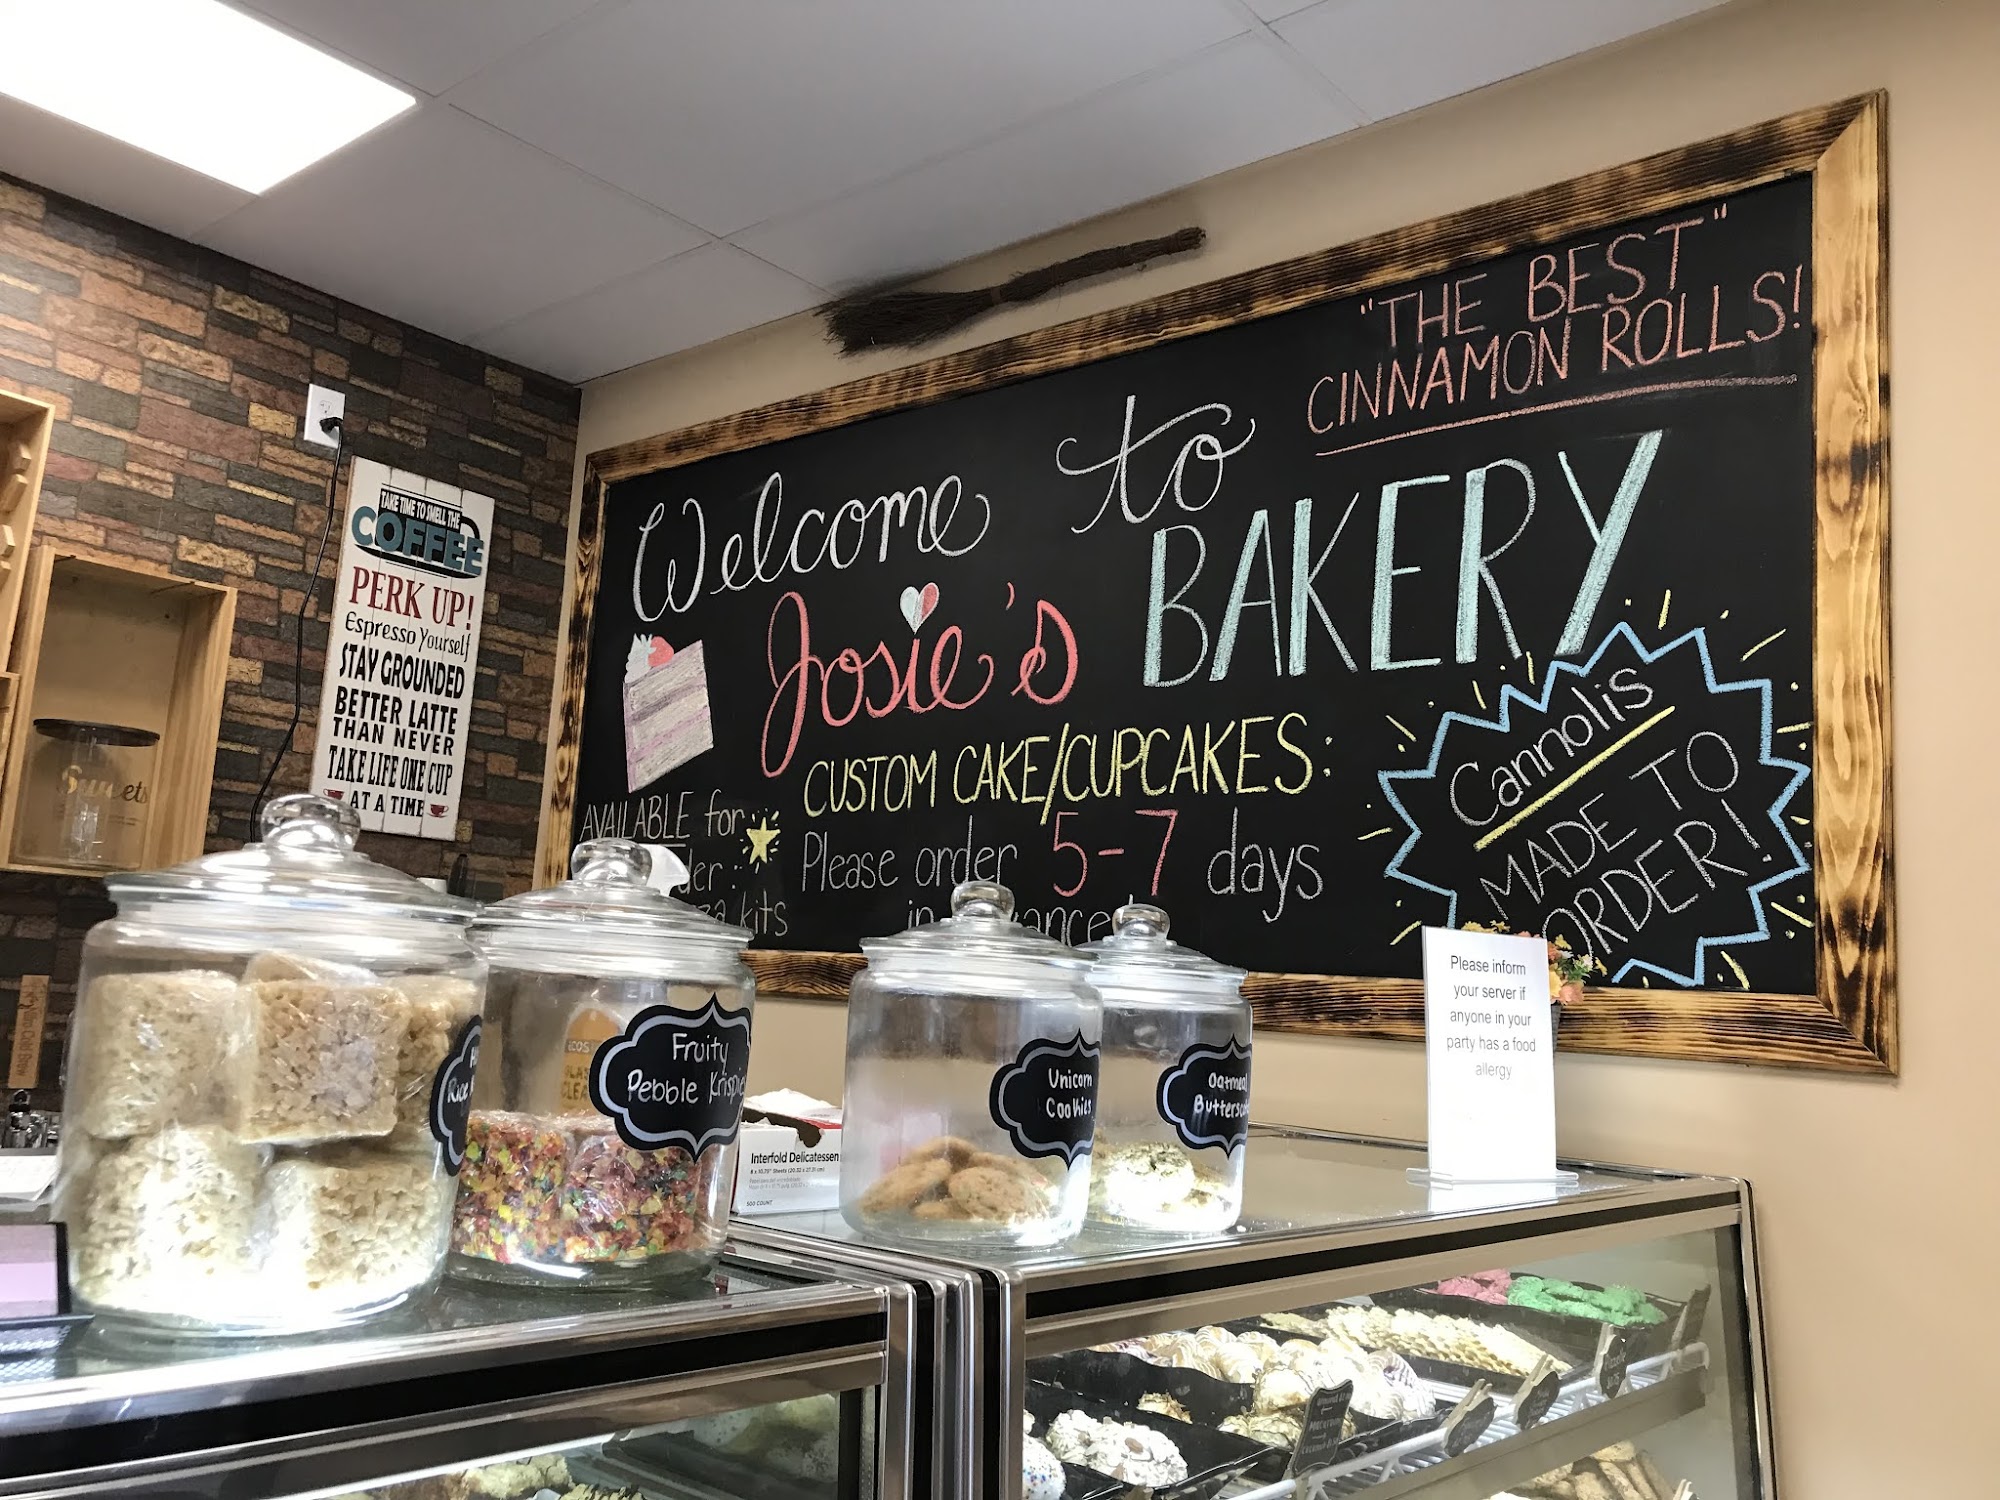 "THE BEST"
CINNAMON ROLLS!
Welcome to
Josie's BAKERY
CUSTOM CAKE/CUPCAKES:
Please order 5-7 days
in
AVAILABLE for
kits
Cannolis
MADE TO
ORDER!
TAKE TIME TO SMELL THE
COFFEE
PERK UP!
Espresso Yourself
STAY GROUNDED
BETTER LATTE
THAN NEVER
TAKE LIFE ONE CUP
AT A TIME
Sweets
Fruity
Pebble Krispie
Unicorn
Cookies
Oatmeal
Interfold Delicatessen
500 COUNT
Please inform
your server if
anyone in your
party has a food
allergy